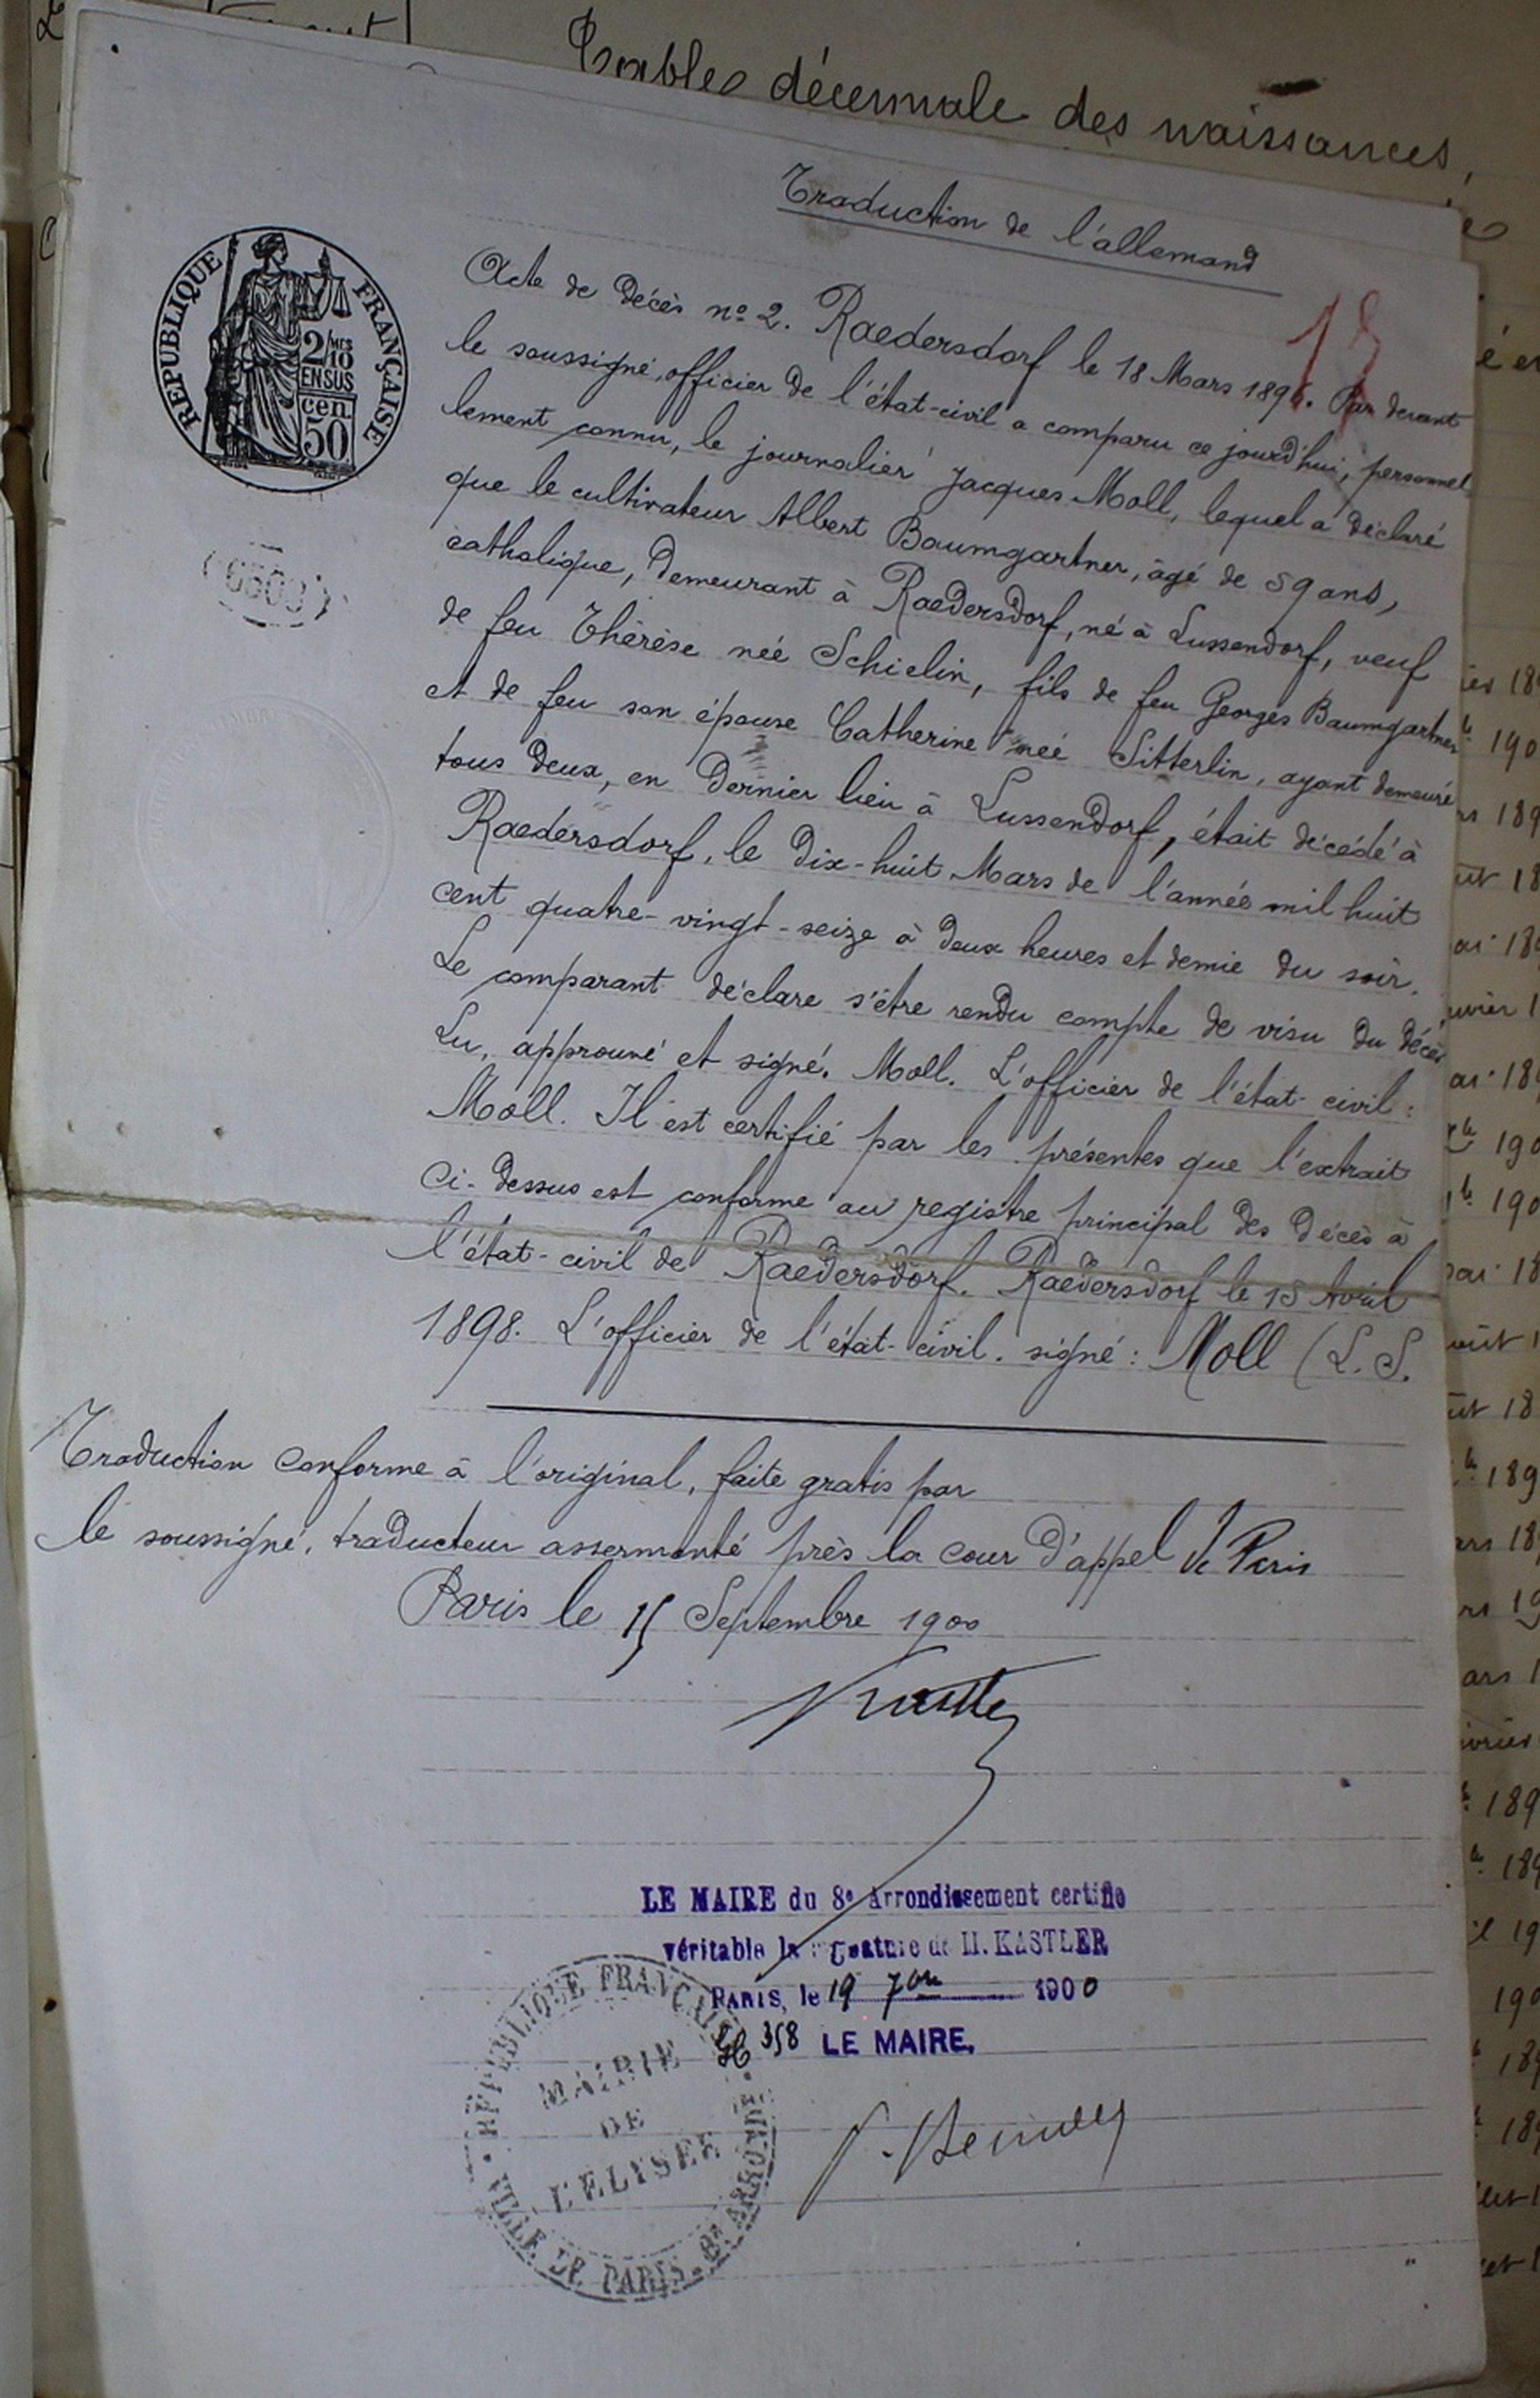 Tables décennale des naissances,
Traduction de l'allemand
18
REPUBLIQUE FRANÇAISE
2/10 MES
EN SUS
cen.
50
Acte de décès nº 2. Raedersdorf le 18 Mars 1896. Par devant
le soussigné, officier de l'état-civil a comparu ce jourd'hui, personnel
lement connu, le journalier Jacques Moll, lequel a déclaré
que le cultivateur Albert Baumgartner, âgé de 59 ans,
catholique, demeurant à Raedersdorf, né à Lussendorf, veuf
de feu Thérèse née Schielin, fils de feu Georges Baumgartner
et de feu son épouse Catherine née Sitterlin, ayant demeuré
tous deux, en dernier lieu à Lussendorf, était décédé à
Raedersdorf, le dix-huit Mars de l'année mil huit
cent quatre-vingt-seize à deux heures et demie du soir.
Le comparant déclare s'être rendu compte de visu du décès
Lu, approuvé et signé. Moll. L'officier de l'état-civil:
Moll. Il est certifié par les présentes que l'extrait
ci-dessus est conforme au registre principal des décès à
l'état-civil de Raedersdorf. Raedersdorf le 15 Avril
1898. L'officier de l'état-civil. signé: Moll (L.S.
Traduction conforme à l'original, faite gratis par
le soussigné, traducteur assermenté près la cour d'appel de Paris
Paris le 15 Septembre 1900
LE MAIRE du 8e Arrondissement certifie
véritable la signature de M. KASTLER
PARIS, le 19 7bre 1900
358 LE MAIRE,
REPUBLIQUE FRANÇAISE
MAIRIE
DE
L'ELYSEE
VILLE DE PARIS. 8e ARRONDt